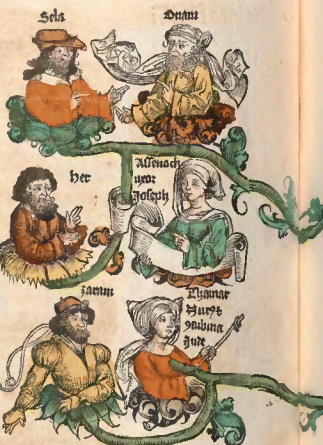 Sela
Onam
Her
Assenech
uxor
Joseph
zaram
Thamar
Nurus
Jude